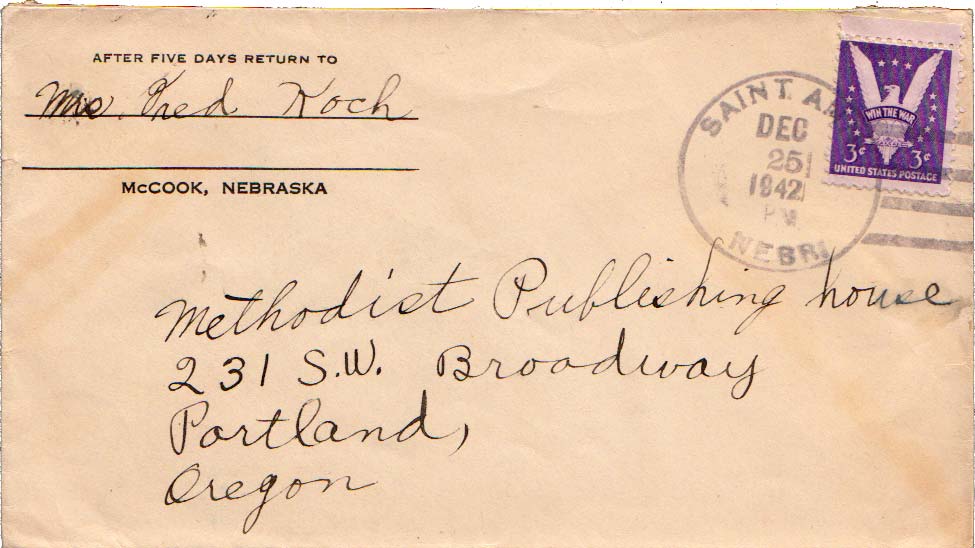 AFTER FIVE DAYS RETURN TO
Mrs. Fred Koch
McCOOK, NEBRASKA
SAINT. A
DEC
25
1942
PM
NEBR.
WIN THE WAR
3¢ 3¢
UNITED STATES POSTAGE
Methodist Publishing house
231 S.W. Broadway
Portland,
Oregon